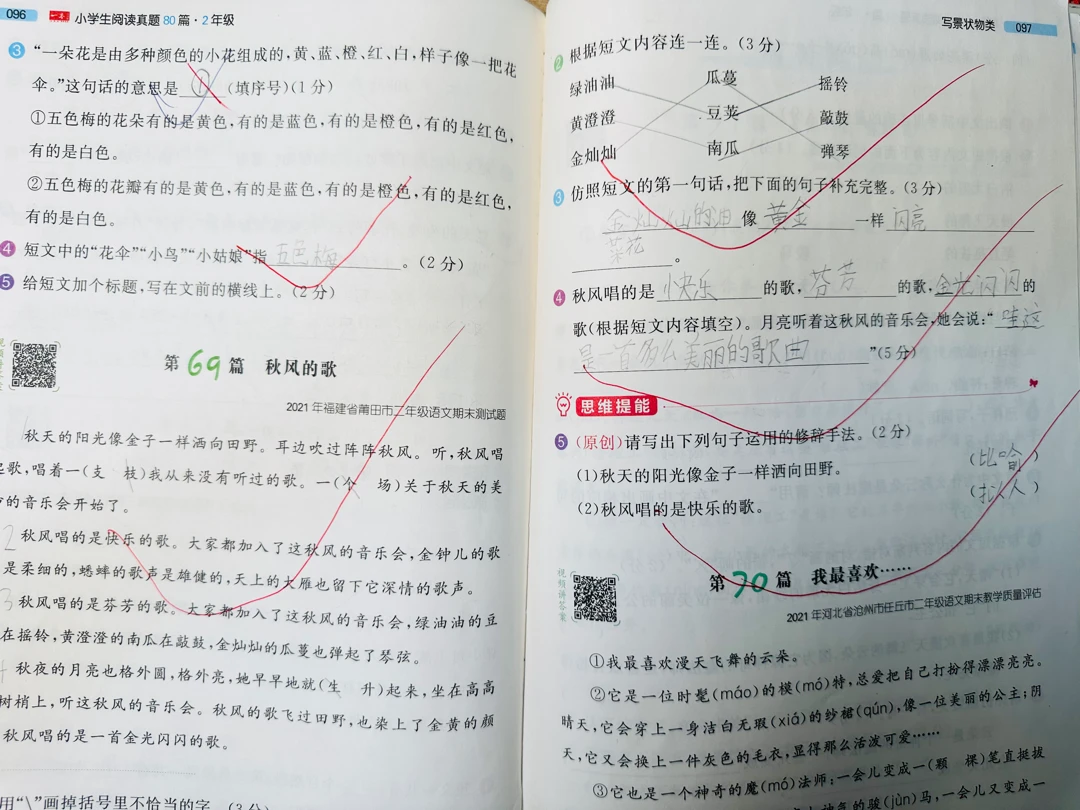 096 一本 小学生阅读真题80篇·2年级
3 “一朵花是由多种颜色的小花组成的,黄、蓝、橙、红、白,样子像一把花
伞。”这句话的意思是 ① (填序号)(1分)
①五色梅的花朵有的是黄色,有的是蓝色,有的是橙色,有的是红色,
有的是白色。
②五色梅的花瓣有的是黄色,有的是蓝色,有的是橙色,有的是红色,
有的是白色。
4 短文中的“花伞”“小鸟”“小姑娘”指 五色梅 。(2分)
5 给短文加个标题,写在文前的横线上。(2分)
第69篇 秋风的歌
2021年福建省莆田市二年级语文期末测试题
秋天的阳光像金子一样洒向田野。耳边吹过阵阵秋风。听,秋风唱
起歌,唱着一(支 枝)我从来没有听过的歌。一(个 场)关于秋天的美
的音乐会开始了。
2 秋风唱的是快乐的歌。大家都加入了这秋风的音乐会,金钟儿的歌
是柔细的,蟋蟀的歌声是雄健的,天上的大雁也留下它深情的歌声。
3 秋风唱的是芬芳的歌。大家都加入了这秋风的音乐会,绿油油的豆
在摇铃,黄澄澄的南瓜在敲鼓,金灿灿的瓜蔓也弹起了琴弦。
4 秋夜的月亮也格外圆,格外亮,她早早地就(生 升)起来,坐在高高
树梢上,听这秋风的音乐会。秋风的歌飞过田野,也染上了金黄的颜
秋风唱的是一首金光闪闪的歌。
用“\”画掉括号里不恰当的字。(3分)
写景状物类 097
2 根据短文内容连一连。(3分)
绿油油 瓜蔓 摇铃
黄澄澄 豆荚 敲鼓
金灿灿 南瓜 弹琴
3 仿照短文的第一句话,把下面的句子补充完整。(3分)
金灿灿的油菜花 像 黄金 一样 闪亮
。
4 秋风唱的是 快乐 的歌, 芬芳 的歌, 金光闪闪 的
歌(根据短文内容填空)。月亮听着这秋风的音乐会,她会说:“ 哇这
是一首多么美丽的歌曲 ”(5分)
思维提能
5 (原创)请写出下列句子运用的修辞手法。(2分)
(1)秋天的阳光像金子一样洒向田野。 (比喻)
(2)秋风唱的是快乐的歌。 (拟人)
视频讲答案
第70篇 我最喜欢……
2021年河北省沧州市任丘市二年级语文期末教学质量评估
①我最喜欢漫天飞舞的云朵。
②它是一位时髦(máo)的模(mó)特,总爱把自己打扮得漂漂亮亮。
晴天,它会穿上一身洁白无瑕(xiá)的纱裙(qún),像一位美丽的公主;阴
天,它又会换上一件灰色的毛衣,显得那么活泼可爱……
③它也是一个神奇的魔(mó)法师:一会儿变成一(颗 棵)笔直挺拔
神气的骏(jùn)马,一会儿又变成一